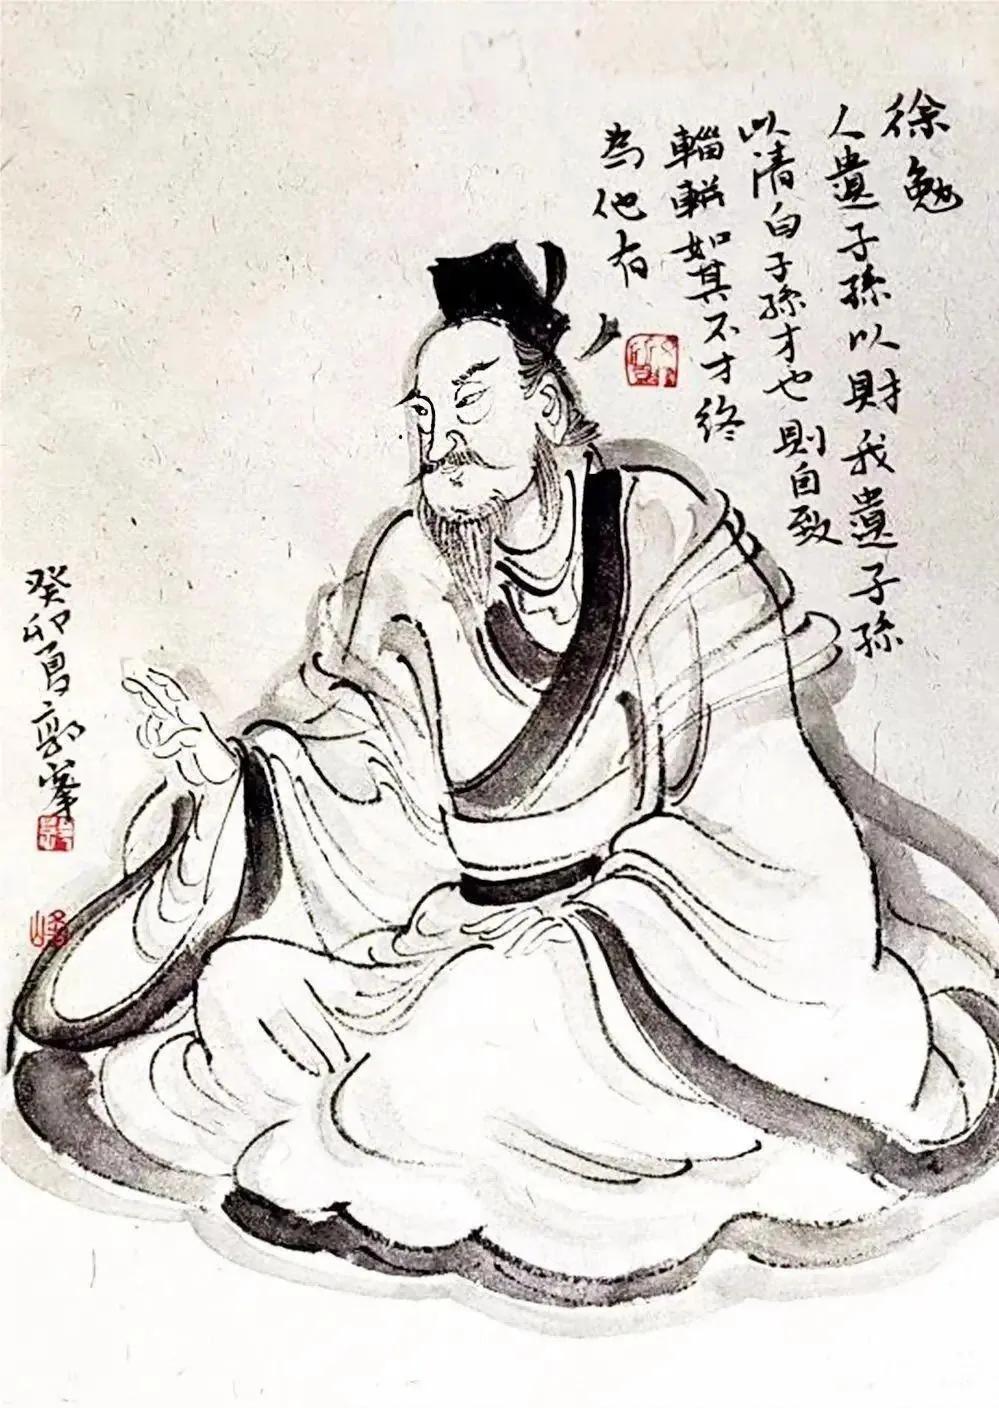 徐勉
人遺子孫以財我遺子孫
以清白子孫才也則自致
輜軿如其不才終
為他有
癸卯夏郭峰